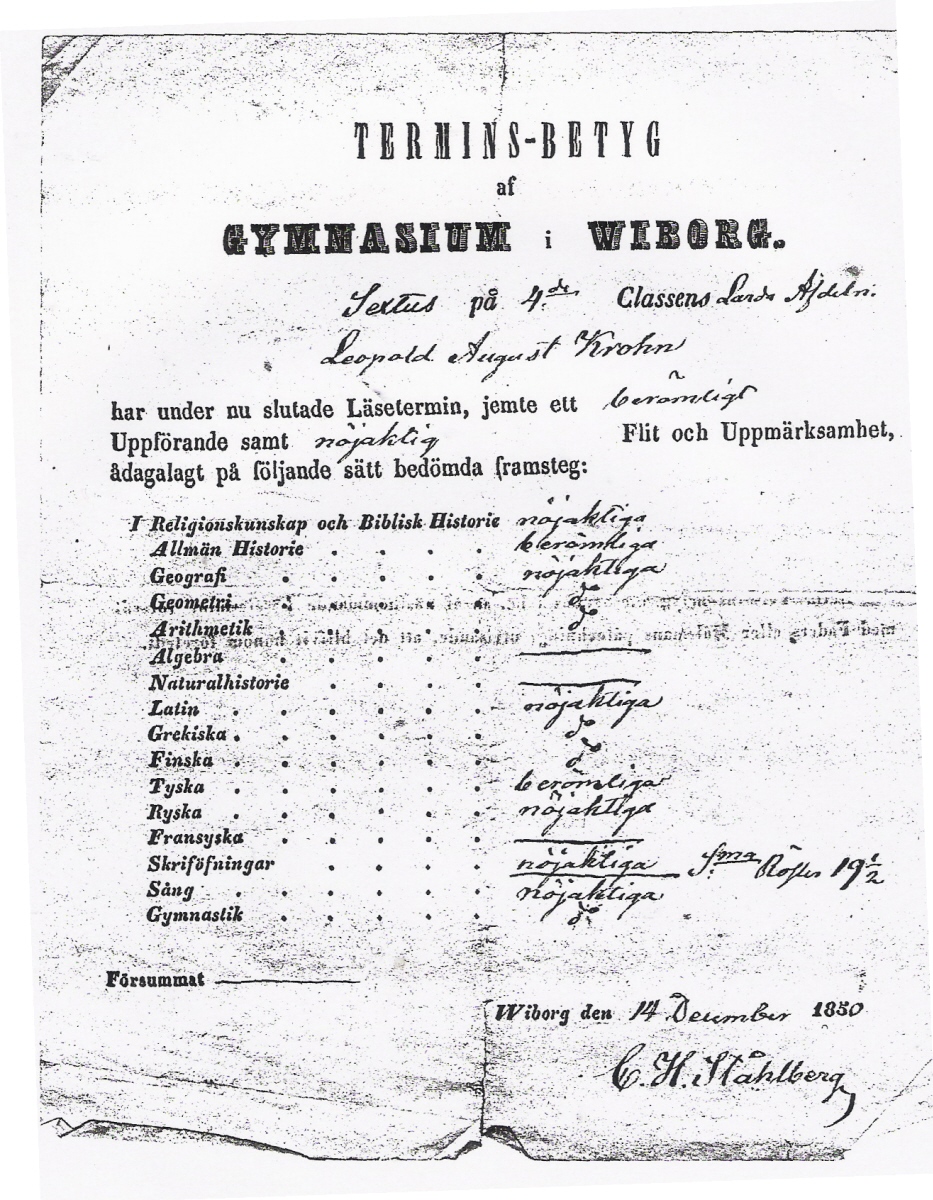 TERMINS-BETYG
af
GYMNASIUM i WIBORG.
Sextus på 4.de Classens Afdeln.
Leopold August Krohn
har under nu slutade Läsetermin, jemte ett berömligt
Uppförande samt nöjaktig Flit och Uppmärksamhet,
ådagalagt på följande sätt bedömda framsteg:
I Religionskunskap och Biblisk Historie nöjaktiga
Allmän Historie . . . . berömliga
Geografi . . . . . nöjaktiga
Geometri . . . . . do
Arithmetik . . . . . do
Algebra . . . . .
Naturalhistorie . . . .
Latin . . . . . . nöjaktiga
Grekiska . . . . . . do
Finska . . . . . . do
Tyska . . . . . . berömliga
Ryska . . . . . . nöjaktiga
Fransyska . . . . .
Skriföfningar . . . . nöjaktiga S:ma Röster 19 1/2
Sång . . . . . . nöjaktiga
Gymnastik . . . . . do
Försummat
Wiborg den 14 December 1850
C. H. Ståhlberg